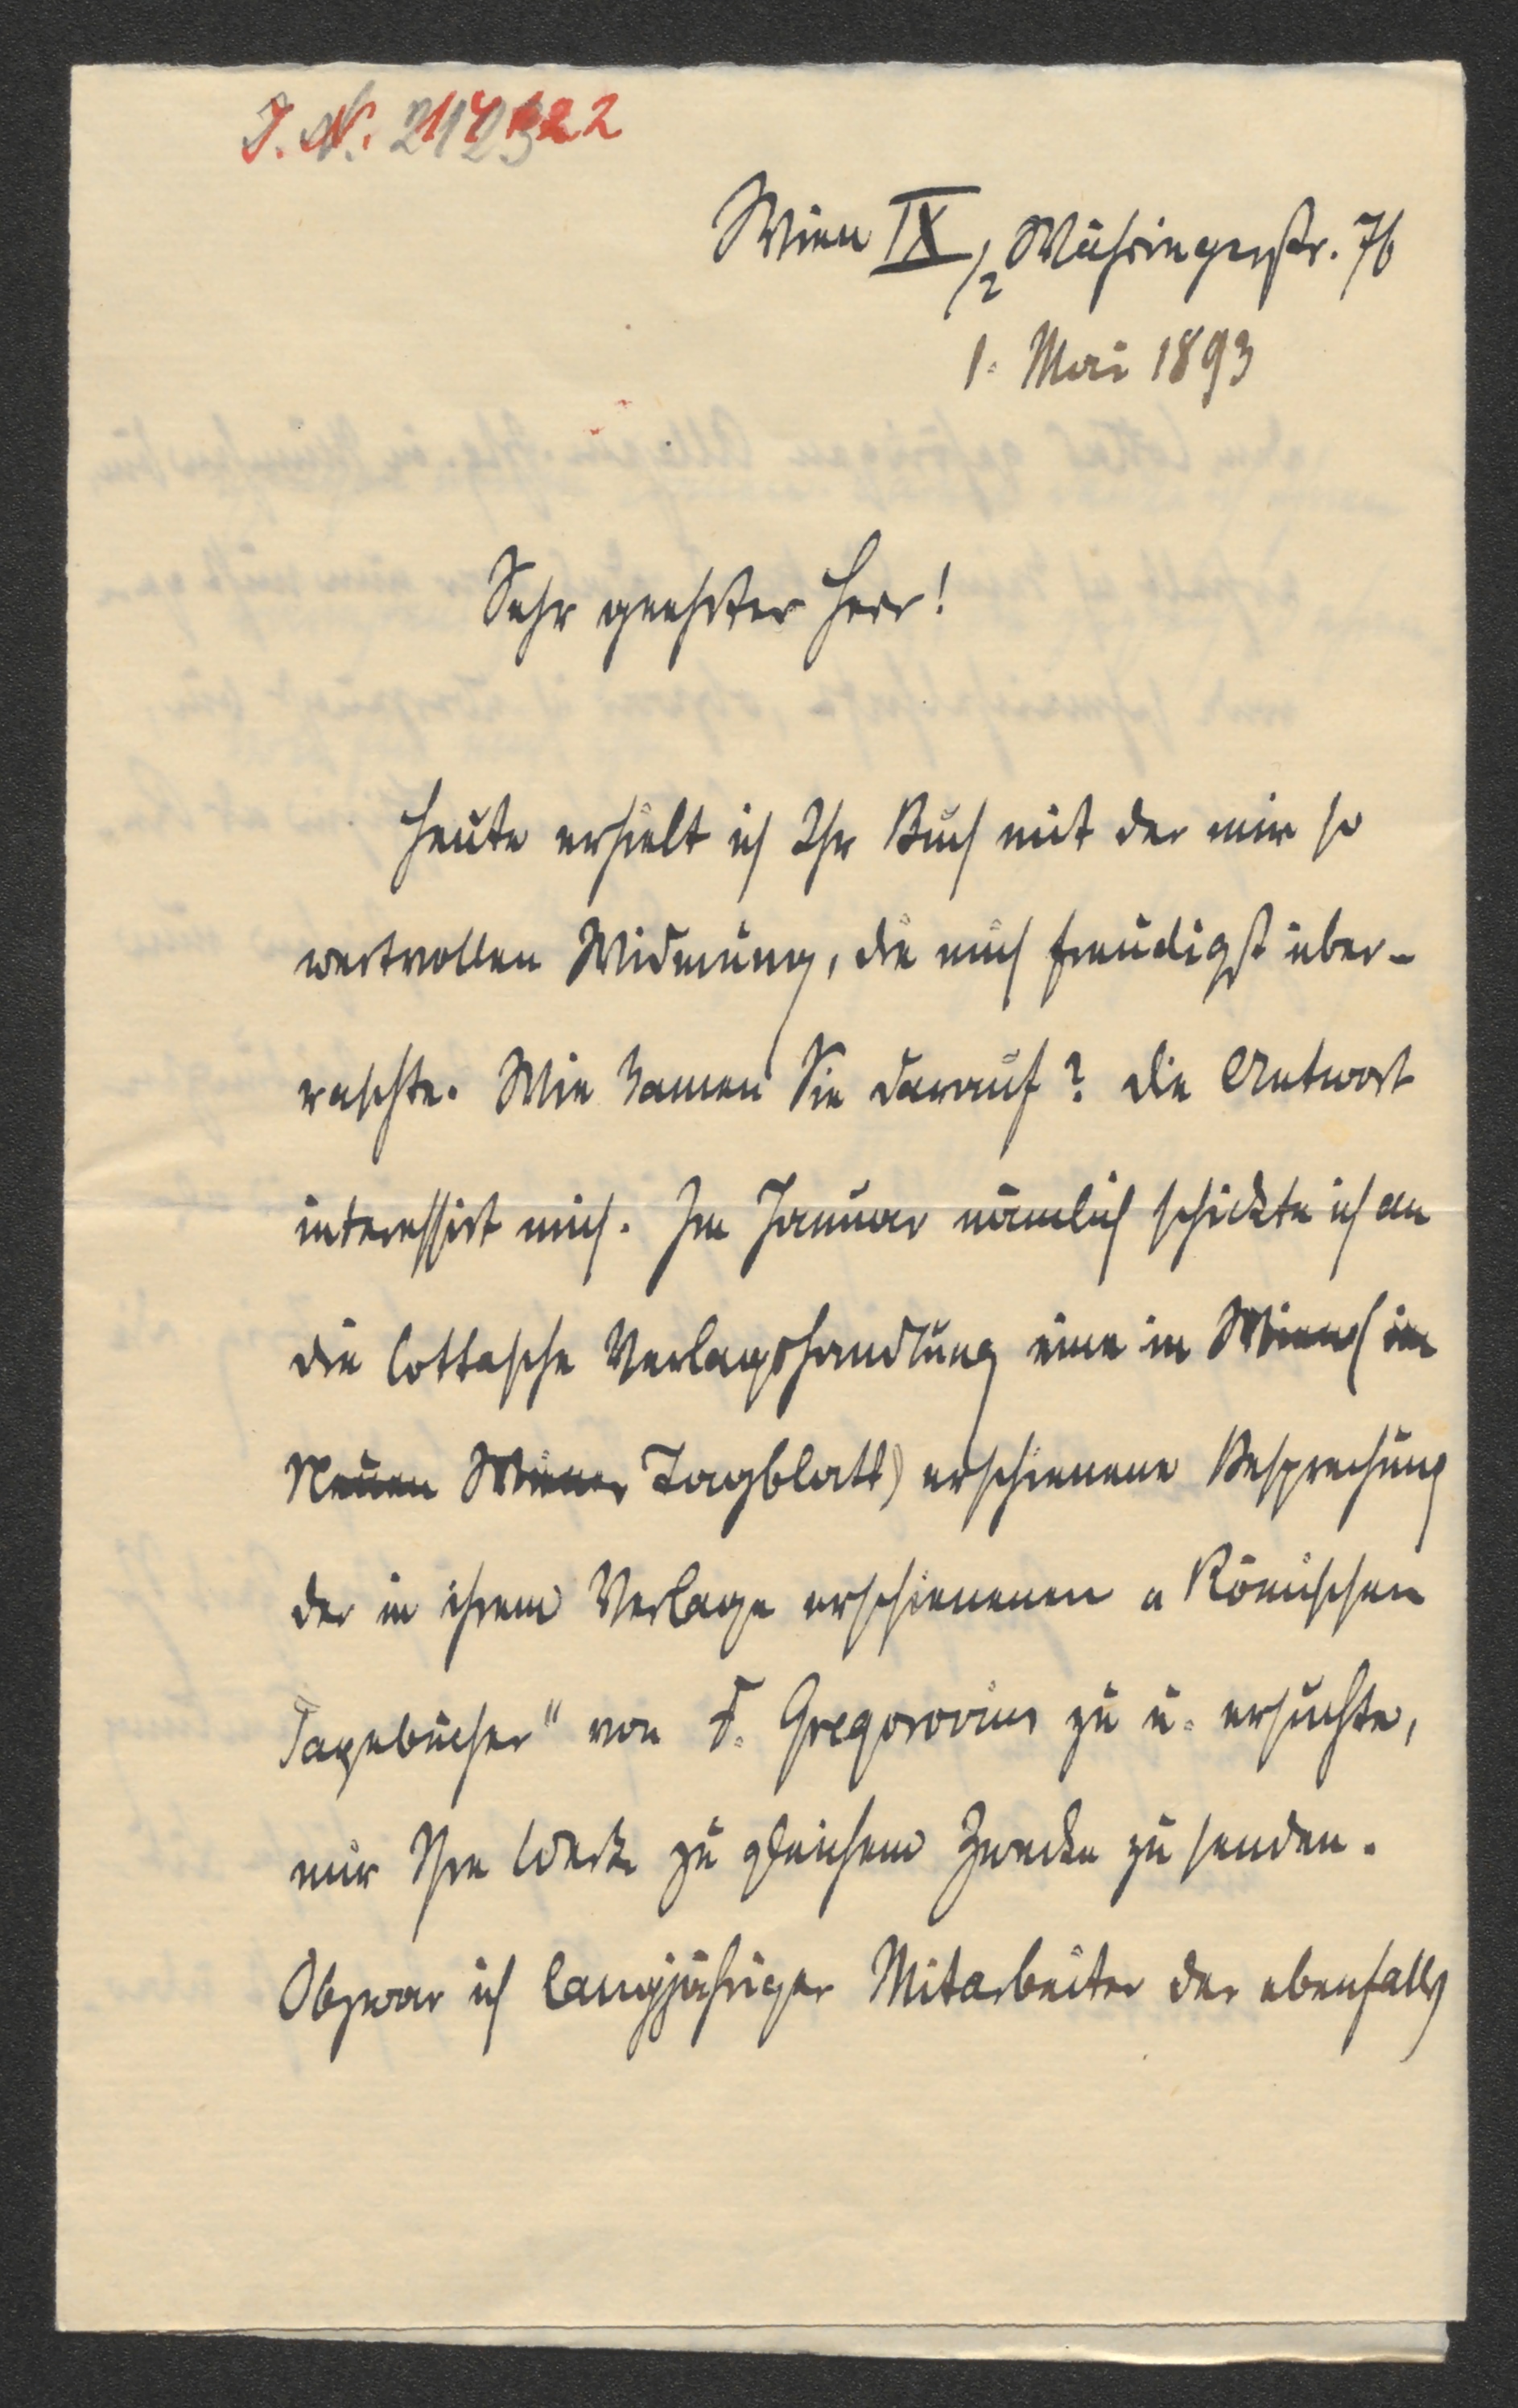 J. N.
Wien IX/2 Währingerstr. 76
1. Mai 1893
Sehr geehrter Herr!
Heute erhielt ich Ihr Buch mit der mir so
wertvollen Widmung, die mich freudigst über-
raschte. Wie kamen Sie darauf? Die Antwort
interessirt mich. Im Januar nämlich schickte ich an
die Cottasche Verlagshandlung eine in Wien (im
Neuen Wiener Tagblatt) erschienene Besprechung
der in ihrem Verlage erschienenen „Römischen
Tagebücher" von F. Gregorovius zu u. ersuchte,
mir Ihre Werke zu gleichem Zwecke zu senden.
Obzwar ich langjähriger Mitarbeiter der ebenfalls